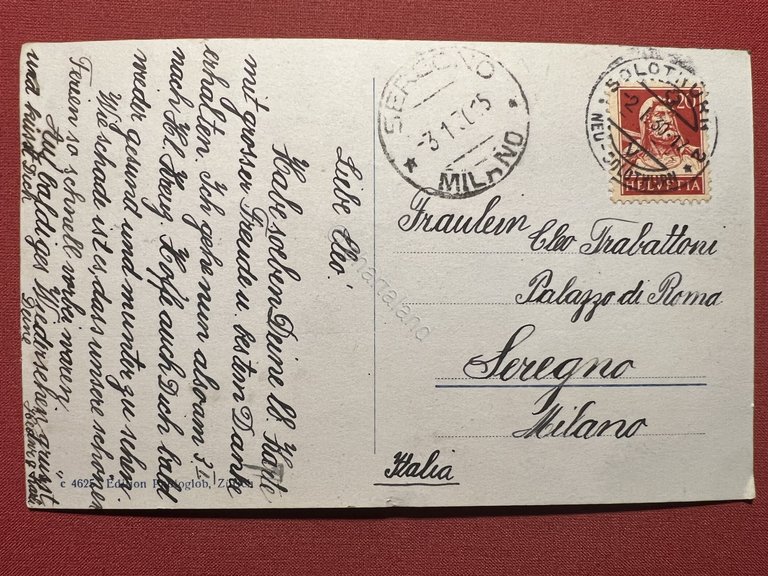 Liebe Cleo!
Habe soeben Deine lb. Karte
mit grosser Freude u. bestem Dank
erhalten. Ich gehe nun also am 5. I
nach Kl. Hoffe auch Dich bald
wieder gesund und munter zu sehen.
Wie schade ist es, dass unsere schönen
Ferien so schnell vorbei waren.
Auf baldiges Wiedersehen grüsst
und küsst Dich Deine
Fräulein Cleo Trabattoni
Palazzo di Roma
Seregno
Milano
Italia
SEREGNO
-3.1.30.15
MILANO
SOLOTHURN 2
2.I.30
NEU-SOLOTHURN
20
HELVETIA
c 4625 Edition Photoglob, Zürich